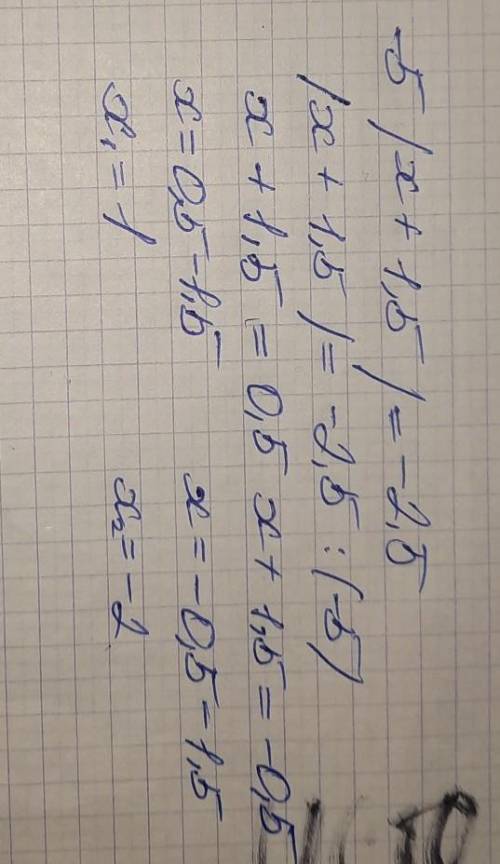 -5 |x + 1,5| = -2,5
|x + 1,5| = -2,5 : (-5)
x + 1,5 = 0,5 x + 1,5 = -0,5
x = 0,5 - 1,5 x = -0,5 - 1,5
x₁ = 1 x₂ = -2